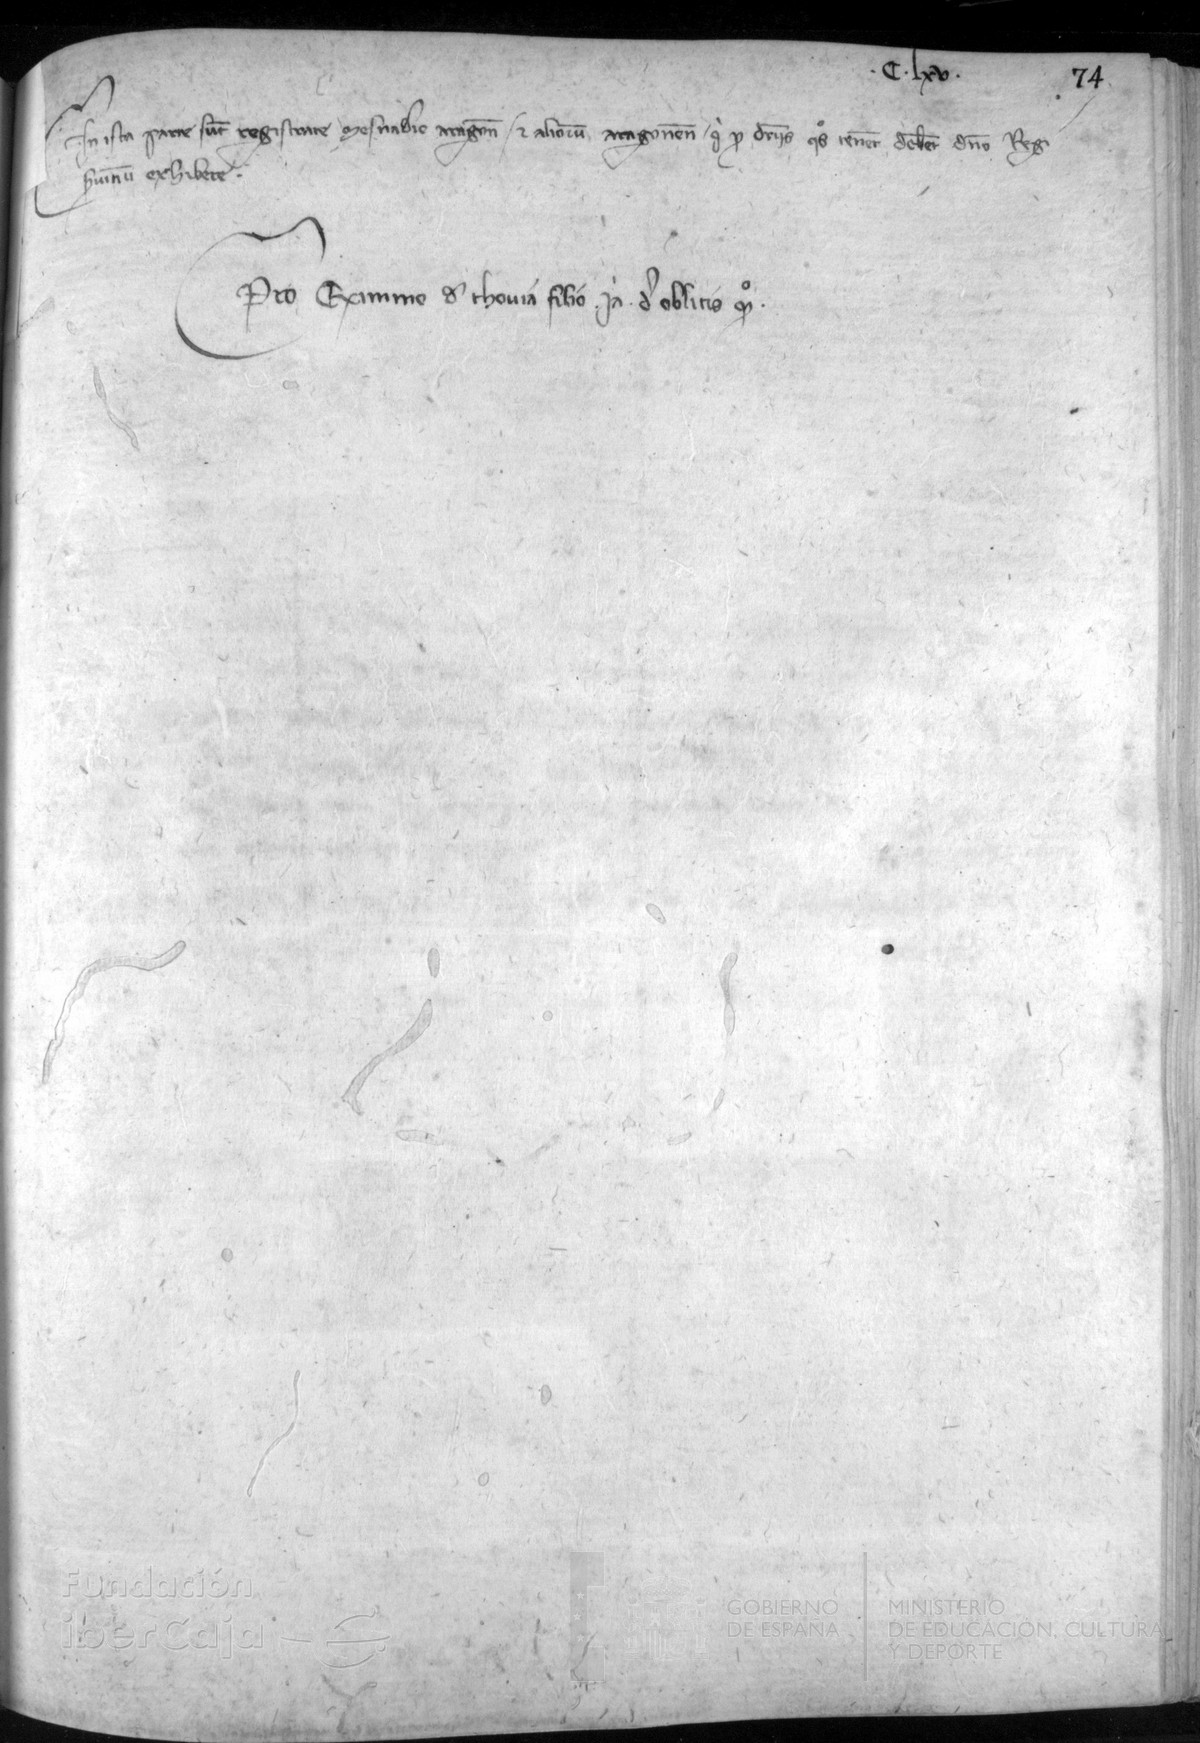 · C · lxv ·
74
In ista parte sūt registrate mesnadie aragon̄ / ⁊ aliorū aragonen̄ q̇ p̱ den̄ijs qͦs tenēt debēt dn̄o Regi
s̄uiciū exhibere ·
Pro Eximino d' thouia filio · ja · d' oblitis qͦ ·
Fundación
iberCaja
GOBIERNO
DE ESPAÑA
MINISTERIO
DE EDUCACIÓN, CULTURA
Y DEPORTE